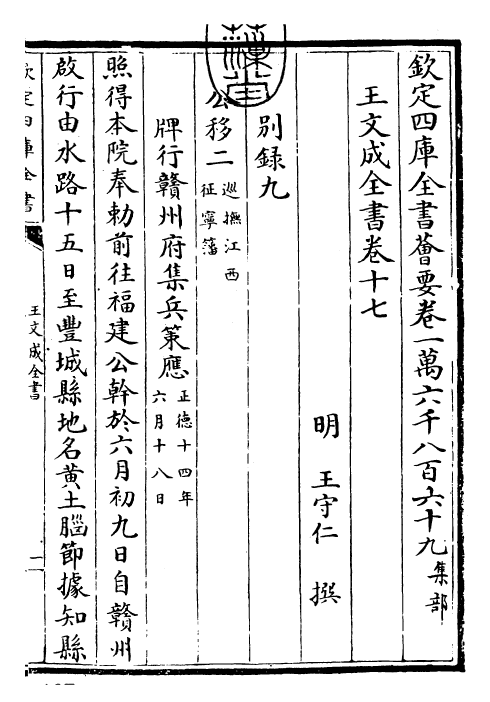 欽定四庫全書薈要卷一萬六千八百六十九集部
王文成全書卷十七
明 王守仁 撰
別錄九
公移二巡撫江西
征寧藩
牌行贛州府集兵策應正德十四年
六月十八日
照得本院奉勅前往福建公幹於六月初九日自贛州
啟行由水路十五日至豐城縣地名黄土腦節據知縣
欽定四庫全書
王文成全書
一